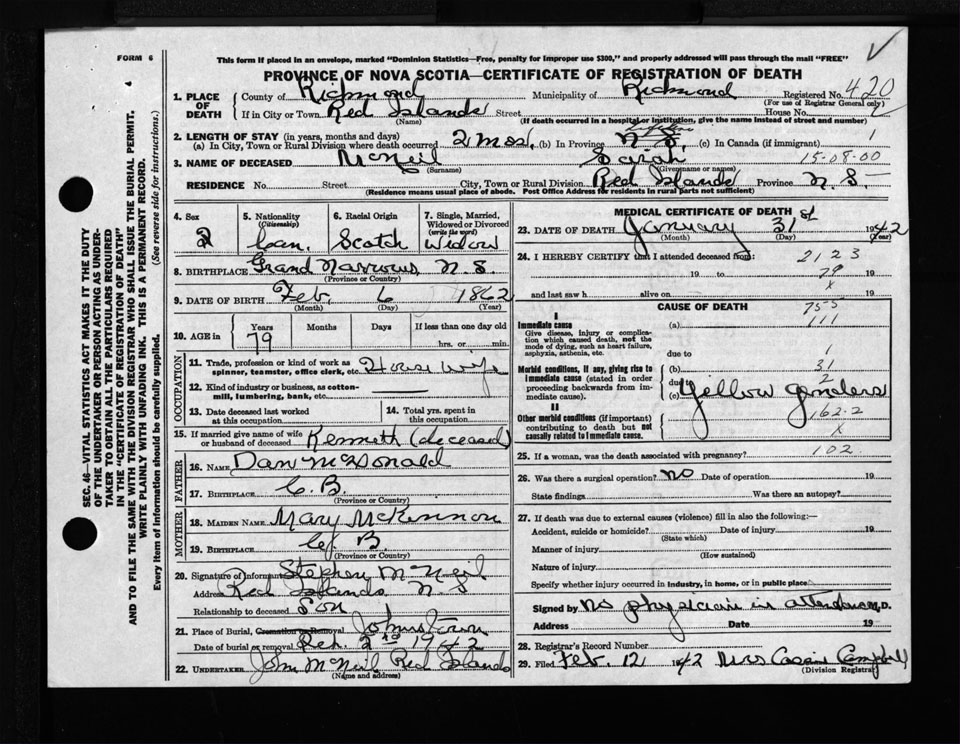 FORM 6
This form if placed in an envelope, marked "Dominion Statistics—Free, penalty for improper use $300," and properly addressed will pass through the mail "FREE"
PROVINCE OF NOVA SCOTIA—CERTIFICATE OF REGISTRATION OF DEATH
1. PLACE OF DEATH County of Richmond Municipality of Richmond Registered No. 420
(For use of Registrar General only)
If in City or Town Red Islands Street House No.
(Name) (If death occurred in a hospital or institution, give the name instead of street and number)
2. LENGTH OF STAY (in years, months and days)
(a) In City, Town or Rural Division where death occurred 2 mos. (b) In Province N.S. (c) In Canada (if immigrant) 1
3. NAME OF DECEASED McNeil Sarah 15-08-00
(Surname) (Given name or names)
RESIDENCE No. Street City, Town or Rural Division Red Islands Province N.S.
(Residence means usual place of abode. Post Office Address for residents in rural parts not sufficient)
4. Sex 2
5. Nationality (Citizenship) Can.
6. Racial Origin Scotch
7. Single, Married, Widowed or Divorced (write the word) Widow
8. BIRTHPLACE Grand Narrows N.S.
(Province or Country)
9. DATE OF BIRTH Feb 6 1862
(Month) (Day) (Year)
10. AGE in Years 79 Months Days If less than one day old
hrs. or min.
OCCUPATION
11. Trade, profession or kind of work as spinner, teamster, office clerk, etc. House wife
12. Kind of industry or business, as cotton-mill, lumbering, bank, etc.
13. Date deceased last worked at this occupation
14. Total yrs. spent in this occupation
15. If married give name of wife or husband of deceased Kenneth (deceased)
FATHER
16. Name Dan McDonald
17. Birthplace C.B.
(Province or Country)
MOTHER
18. Maiden Name Mary McKinnon
19. Birthplace C. B.
(Province or Country)
20. Signature of Informant Stephen McNeil
Address Red Islands N.S
Relationship to deceased Son
21. Place of Burial, Cremation or Removal Johnstown
Date of burial or removal Feb. 2nd 1942
22. UNDERTAKER John McNeil Red Islands
(Name and address)
MEDICAL CERTIFICATE OF DEATH
23. DATE OF DEATH January 31st 1942
(Month) (Day) (Year)
24. I HEREBY CERTIFY that I attended deceased from: 2123
19 to 79 19
x
and last saw h alive on 19
CAUSE OF DEATH
75-5
I
Immediate cause (a) 111
Give disease, injury or complication which caused death, not the mode of dying, such as heart failure, asphyxia, asthenia, etc.
due to 1
Morbid conditions, if any, giving rise to immediate cause (stated in order proceeding backwards from immediate cause). (b) 31
due 2
(c) Yellow
II
Other morbid conditions (important) contributing to death but not causally related to immediate cause. 162-2
x
25. If a woman, was the death associated with pregnancy? 102
26. Was there a surgical operation? No Date of operation 19
State findings Was there an autopsy?
27. If death was due to external causes (violence) fill in also the following:—
Accident, suicide or homicide? Date of injury 19
(State which)
Manner of injury
(How sustained)
Nature of injury
Specify whether injury occurred in industry, in home, or in public place
Signed by No physician in attendance M.D.
Address Date 19
28. Registrar's Record Number
29. Filed Feb. 12 1942 Mrs Campbell
(Division Registrar)
SEC. 46—VITAL STATISTICS ACT MAKES IT THE DUTY
OF THE UNDERTAKER OR PERSON ACTING AS UNDER-
TAKER TO OBTAIN ALL THE PARTICULARS REQUIRED
IN THE "CERTIFICATE OF REGISTRATION OF DEATH"
AND TO FILE THE SAME WITH THE DIVISION REGISTRAR WHO SHALL ISSUE THE BURIAL PERMIT.
WRITE PLAINLY WITH UNFADING INK. THIS IS A PERMANENT RECORD.
Every item of Information should be carefully supplied. (See reverse side for instructions.)